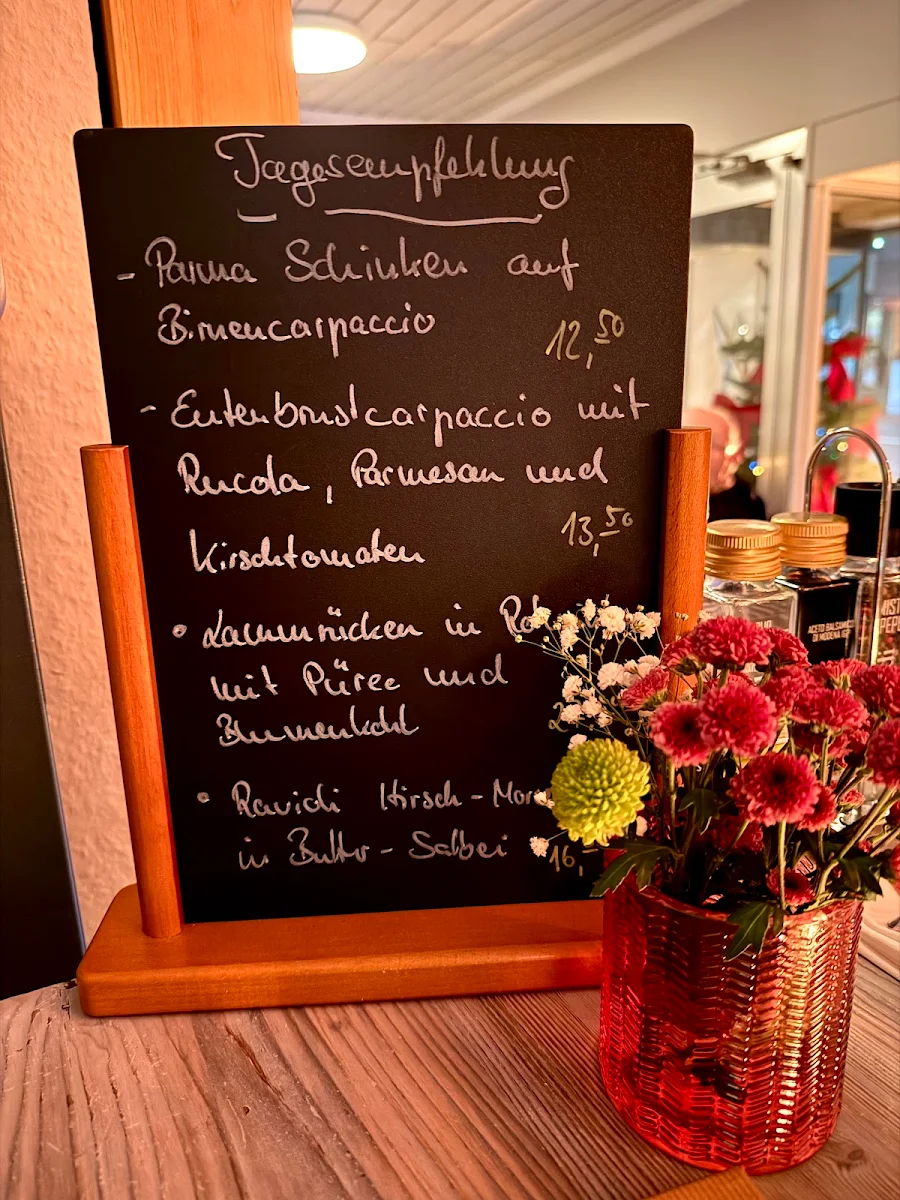 Tagesempfehlung
- Parma Schinken auf
Birnencarpaccio
12,50
- Entenbrustcarpaccio mit
Rucola, Parmesan und
Kirschtomaten
13,50
• Lammrücken in
mit Püree und
Blumenkohl
• Ravioli Hirsch-
in Butter-Salbei
16,-
ACETO BALSAMICO
DI MODENA IGP